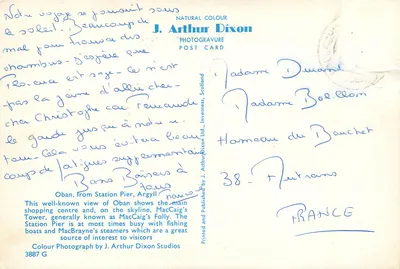 Notre voyage se poursuit sous
le soleil. Beaucoup de
mal pour trouver des
chambres. J'espère que
Florence est sage. Ce n'est
pas la peine d'aller cher-
cher Christophe car Fernande
le garde jusqu'à notre re-
tour. Cela vous évitera beau
coup de fatigues supplémentaires
Bons Baisers à
tous
NATURAL COLOUR
J. Arthur Dixon
PHOTOGRAVURE
POST CARD
Madame Durand
Madame
Hameau du Bouchet
38 - Autrans
FRANCE
Oban, from Station Pier, Argyll
This well-known view of Oban shows the main
shopping centre and, on the skyline, MacCaig's
Tower, generally known as MacCaig's Folly. The
Station Pier is at most times busy with fishing
boats and MacBrayne's steamers which are a great
source of interest to visitors
Colour Photograph by J. Arthur Dixon Studios
3887 G
Printed and Published by J. Arthur Dixon Ltd., Inverness, Scotland